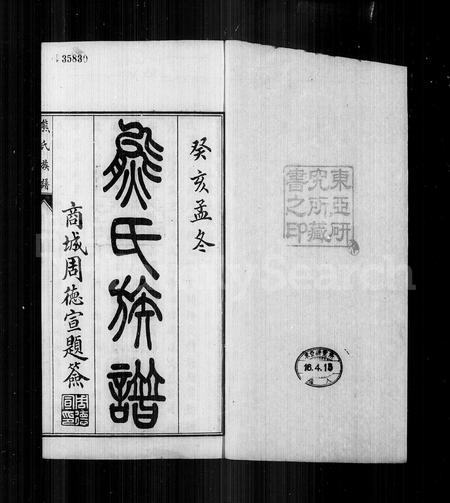 35830
癸亥孟冬
熊氏族譜
商城周德宣題簽
周德宣印
熊氏族譜
東亞研
究所藏
書之印
16.4.15